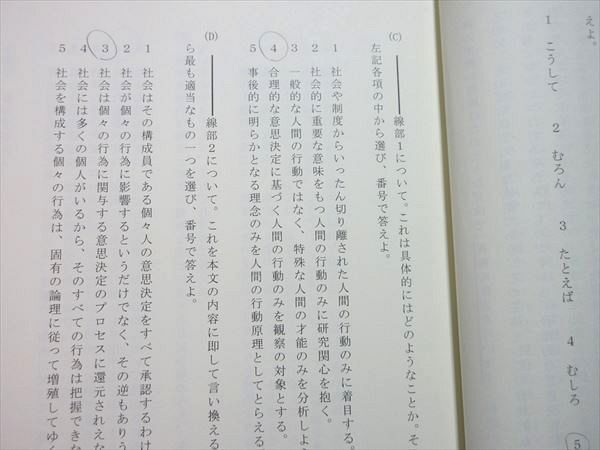 えよ。
1 こうして 2 むろん 3 たとえば 4 むしろ
5
(C) ━━線部1について。これは具体的にはどのようなことか。そ
左記各項の中から選び、番号で答えよ。
1 社会や制度からいったん切り離された人間の行動のみに着目する。
2 社会的に重要な意味をもつ人間の行動のみに研究関心を抱く。
3 一般的な人間の行動ではなく、特殊な人間の才能のみを分析しよ
4 合理的な意思決定に基づく人間の行動のみを観察の対象とする。
5 事後的に明らかとなる理念のみを人間の行動原理としてとらえる
(D) ━━線部2について。これを本文の内容に即して言い換える
ら最も適当なもの一つを選び、番号で答えよ。
1 社会はその構成員である個々人の意思決定をすべて承認するわけ
2 社会が個々の行為に影響するというだけでなく、その逆もありう
3 社会は個々の行為に関与する意思決定のプロセスに還元されえな
4 社会には多くの個人がいるから、そのすべての行為は把握できな
5 社会を構成する個々の行為は、固有の論理に従って増殖してゆく